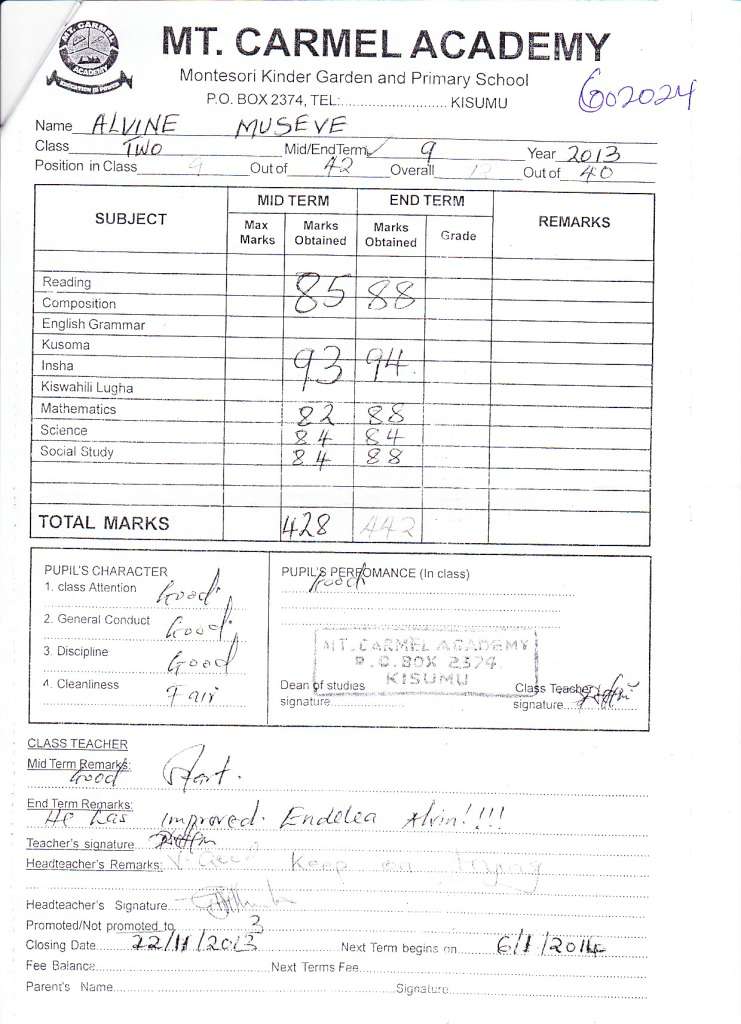 MT. CARMEL
ACADEMY
EDUCATION IS POWER
MT. CARMEL ACADEMY
Montesori Kinder Garden and Primary School
P.O. BOX 2374, TEL:............................ KISUMU
602024
Name ALVINE MUSEVE
Class TWO Mid/End Term ✓ 9 Year 2013
Position in Class 9 Out of 42 Overall 12 Out of 40
SUBJECT MID TERM END TERM REMARKS
Max Marks Marks Obtained Marks Obtained Grade
Reading 85 88
Composition
English Grammar
Kusoma
Insha 93 94
Kiswahili Lugha
Mathematics 82 88
Science 84 84
Social Study 84 88
TOTAL MARKS 428 442
PUPIL'S CHARACTER
1. class Attention Good
2. General Conduct Good
3. Discipline Good
4. Cleanliness Fair
PUPIL'S PERFOMANCE (In class)
Good
MT. CARMEL ACADEMY
P.O. BOX 2374
KISUMU
Dean of studies signature
Class Teacher signature
CLASS TEACHER
Mid Term Remarks: Good Start.
End Term Remarks: He has improved. Endelea Alvin!!!!
Teacher's signature
Headteacher's Remarks: V. Good Keep on trying
Headteacher's Signature
Promoted/Not promoted to 3
Closing Date 22/11/2013 Next Term begins on 6/1/2014
Fee Balance Next Terms Fee
Parent's Name Signature